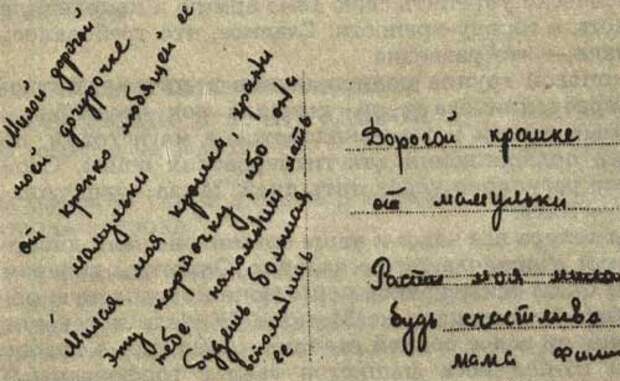 Милой дорогой
моей дочурочке
от крепко любящей ее
мамульки
Милая моя крошка, храни
эту карточку, ибо она
тебе напомнит мать
будешь большая
вспомнишь
ее
Дорогой крошке
от мамульки
Расти моя
будь счастлива
мама